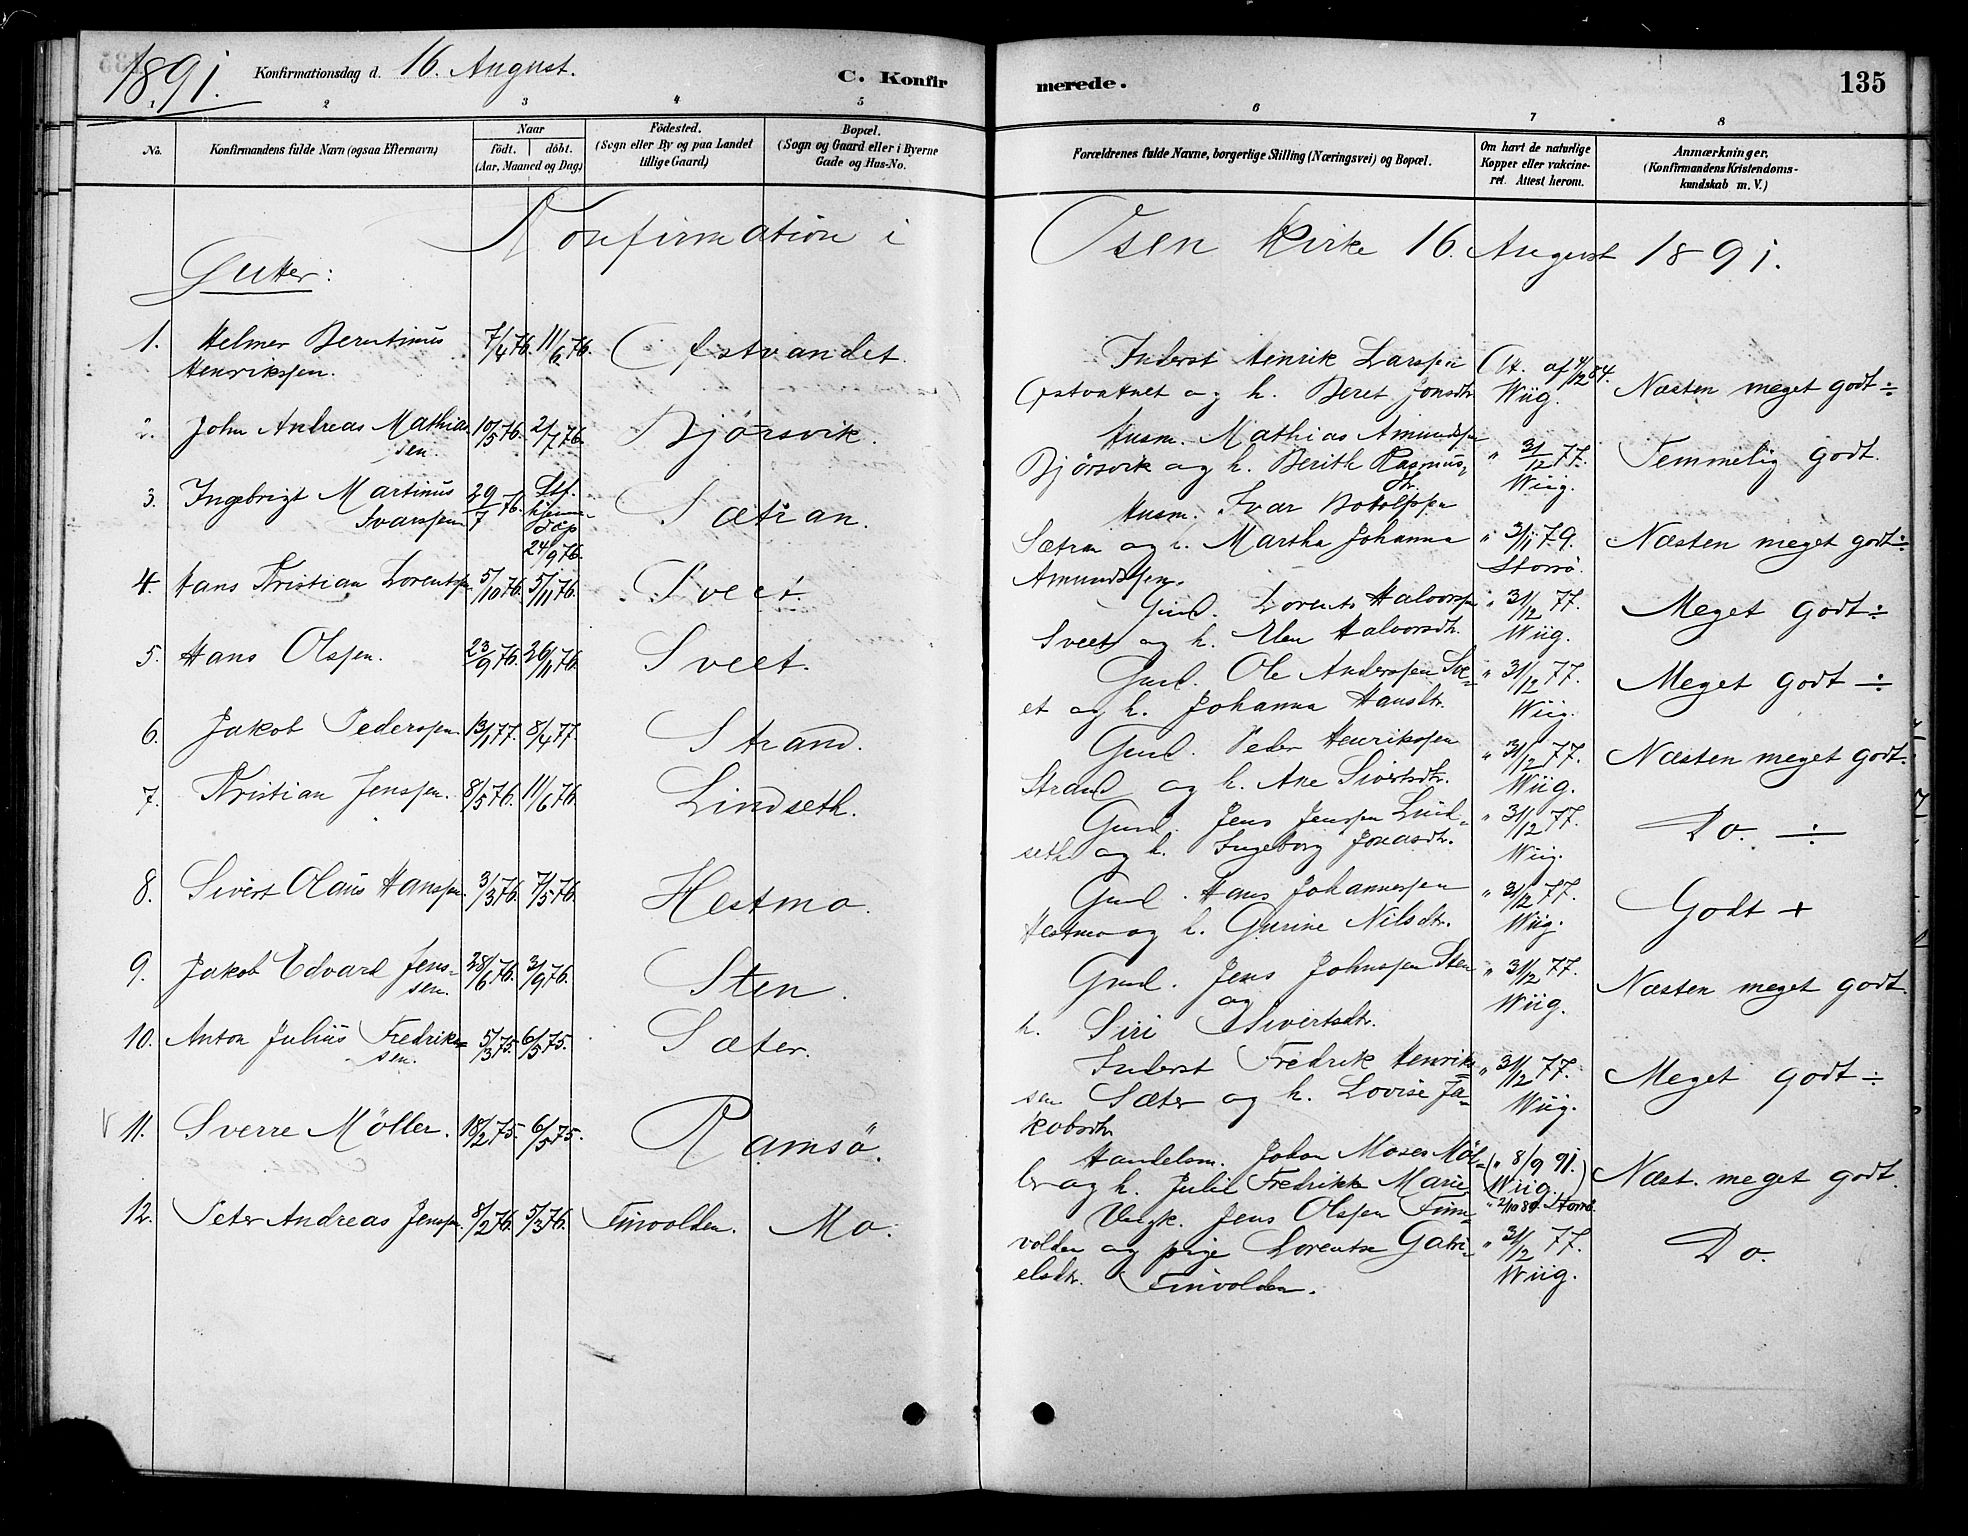 1891.
Konfirmationsdag d. 16. August.
C. Konfir
merede.
135
2
3
4
5
6
7
8
No.
Konfirmandens fulde Navn (ogsaa Efternavn)
Naar
födt. döbt.
(Aar, Maaned og Dag)
Födested.
(Sogn eller By og paa Landet
tillige Gaard)
Bopæl.
(Sogn og Gaard eller i Byerne
Gade og Hus-No.
Forældrenes fulde Navne, borgerlige Stilling (Næringsvei) og Bopæl.
Om havt de naturlige
Kopper eller vakcine-
ret. Attest herom.
Anmærkninger.
(Konfirmandens Kristendoms-
kundskab m. V.)
Konfirmation i
Osen Kirke 16. August 1891.
Gutter:
1. Helmer Berntinus 7/4 76. 11/6 76. Østvandet
Henrikssen.
Inderst Henrik Larssen
Østvatnet og h. Beret Jonsdtr.
At. af 4/12 84.
Wiig.
Næsten meget godt ÷
2. John Andreas Mathias 10/5 76. 2/7 76. Bjørsvik.
sen.
Husm. Mathias Amundssen
Bjørsvik og h. Berith Rasmus
dtr.
" 31/12 77.
Wiig.
Temmelig godt.
3. Ingebrigt Martinus 29/7 76. Stf. Sætran.
Ivarssen
hjemme
Døp
24/9 76.
Husm. Ivar Bototfssen
Sætran og h. Martha Johanna
Amundssen.
" 3/11 79.
Storrø.
Næsten meget godt ÷
4. Hans Kristian Lorentssen 5/10 76. 5/11 76. Sveet.
Gmd. Lorents Halvorssen
Sveet og h. Elen Halvorsdtr.
" 31/12 77.
Wiig.
Meget godt ÷
5. Hans Olssen. 23/9 76. 26/11 76. Sveet.
Gmd. Ole Anderssen Sve-
et og h. Johanna Hansdtr.
" 31/12 77.
Wiig.
Meget godt ÷
6. Jakob Pederssen 13/1 77. 8/4 77. Strand.
Gmd. Peder Henrikssen
Strand og h. Ane Sivertsdtr.
" 31/12 77.
Wiig.
Næsten meget godt.
7. Kristian Jenssen. 8/5 76. 11/6 76. Lindseth.
Gmd. Jens Jenssen Lind-
seth og h. Ingeborg Jonasdtr.
" 31/12 77.
Wiig.
Do. ÷
8. Sivert Olaus Hanssen. 3/3 76. 7/5 76. Hestmo.
Gmd. Hans Johannessen
Hestmo og h. Gurine Nilsdtr.
" 31/12 77.
Wiig.
Godt +
9. Jakob Edvard Jens- 28/6 76. 3/9 76. Sten.
sen.
Gmd. Jens Johnssen Sten
og
h. Siri Sivertsdtr.
" 31/12 77.
Wiig.
Næsten meget godt.
10. Anton Julius Fredrik- 5/3 75. 6/5 75. Sæter.
sen.
Inderst Fredrik Henrik-
sen Sæter og h. Lovise Ja-
kobsdtr.
" 31/12 77.
Wiig.
Meget godt ÷
11. Sverre Møller. 18/2 75. 6/5 75. Ramsö.
Handelsm. Johan Moses Møl-
ler og h. Julie Fredrikk Marie
(" 8/9 91.)
Wiig.
" 2/10 84. Storrö.
Næst. meget godt.
12. Peter Andreas Jenssen. 8/2 76. 5/3 76. Finvolden. Mo.
Ungk. Jens Olssen Finn-
volden og pige Lorentse Gabri-
elsdtr. Finvolden.
" 31/12 77.
Wiig.
Do.